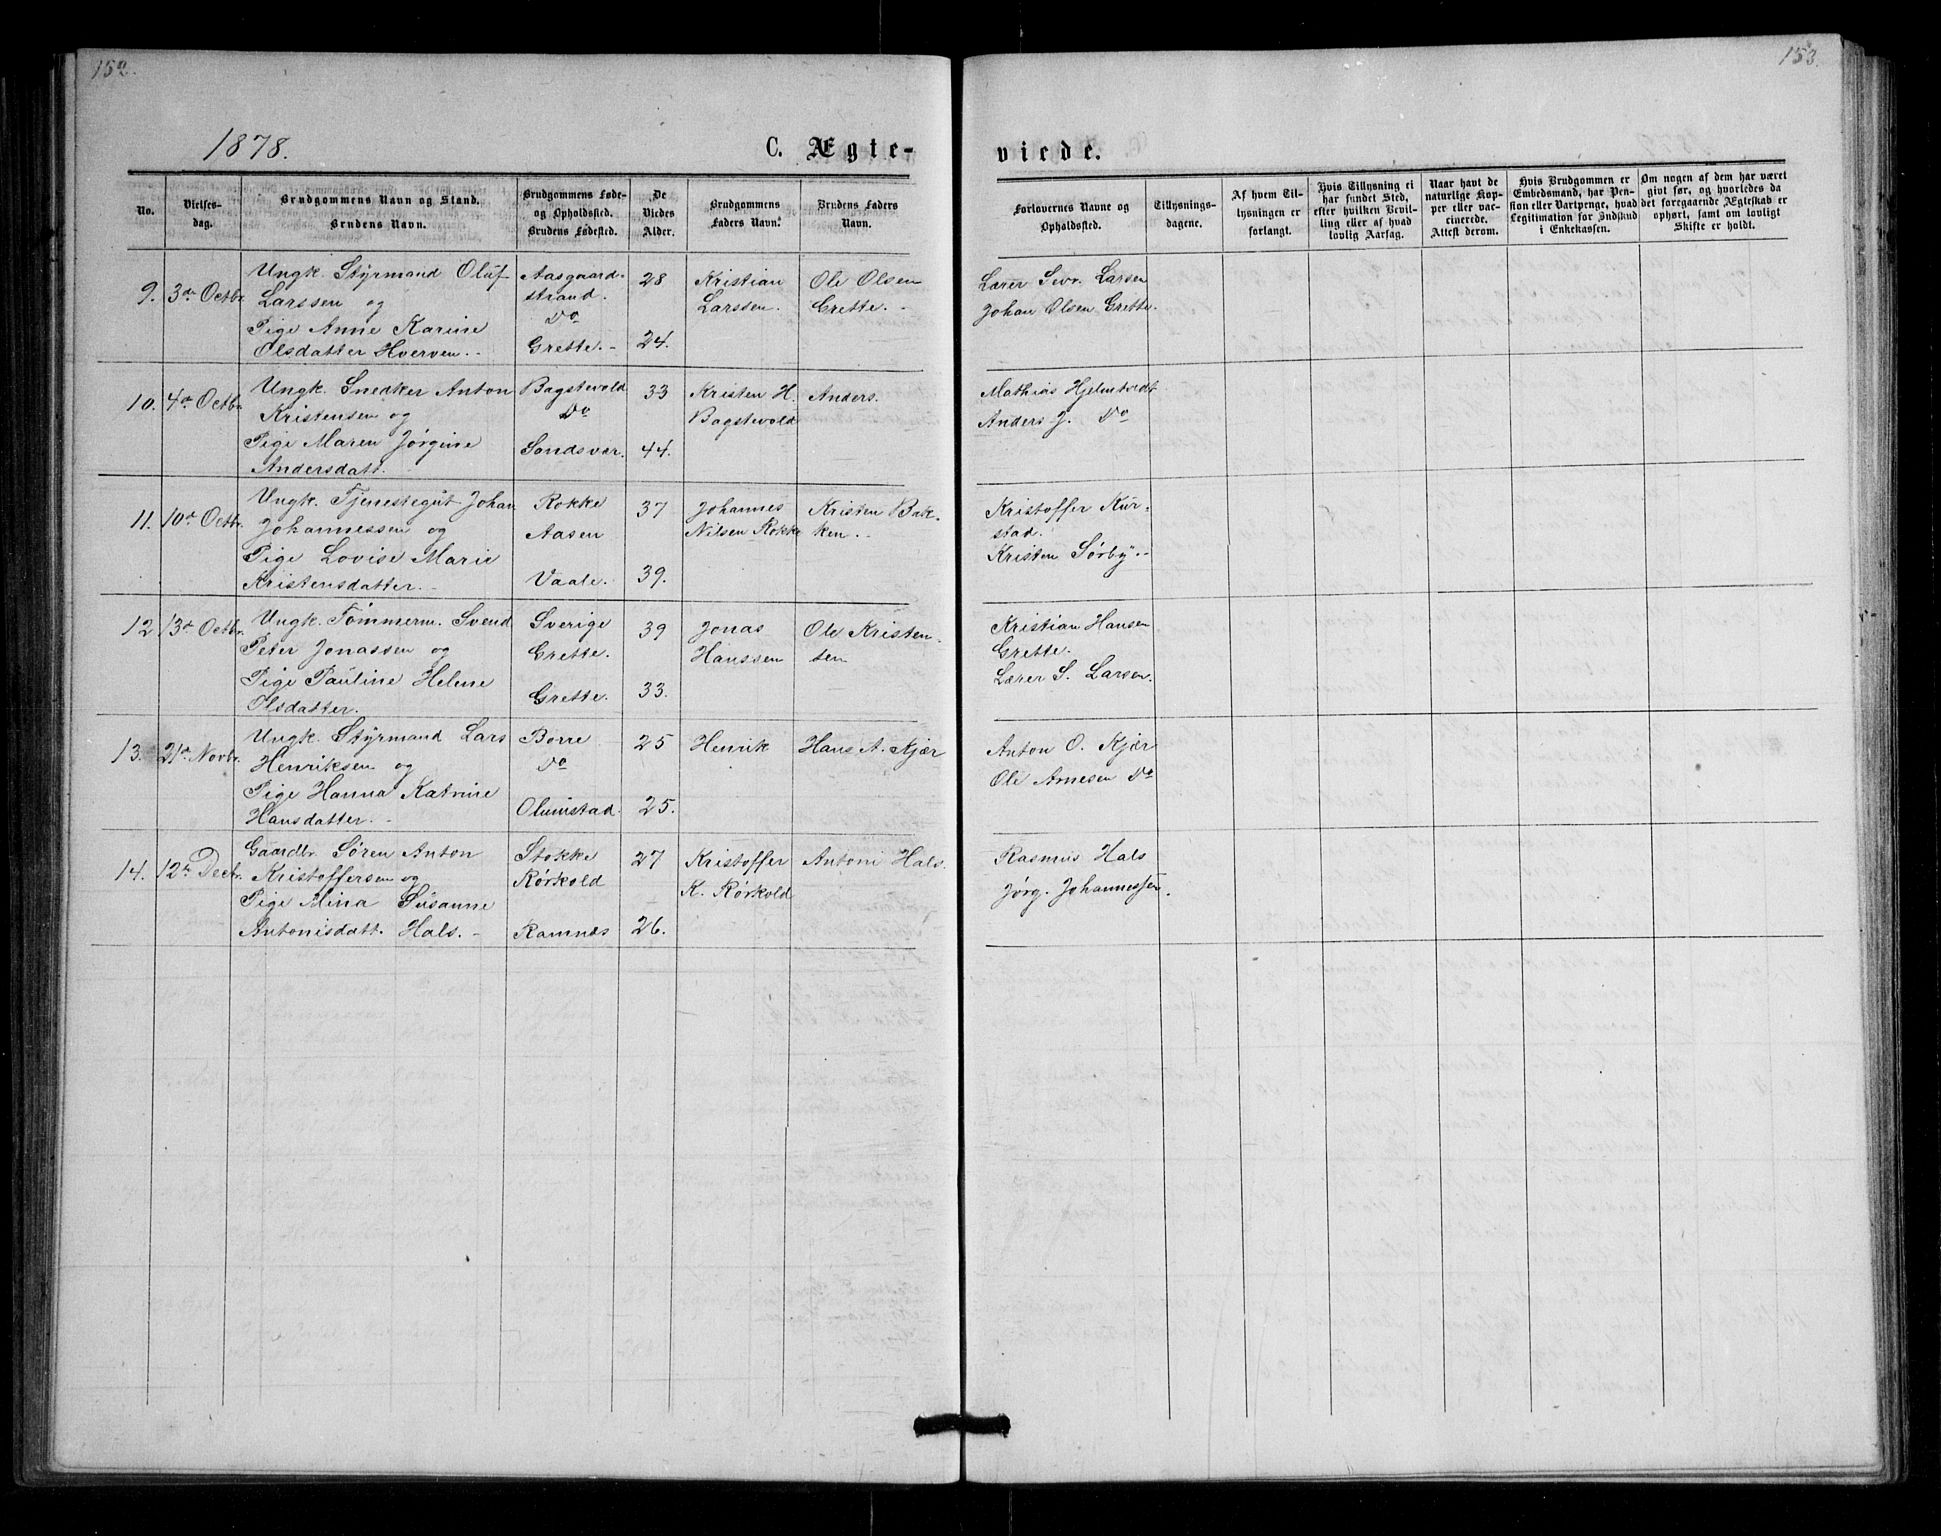 152.
1878.
C. Ægte-
No.
Vielses-
dag.
Brudgommens Navn og Stand.
Brudens Navn.
Brudgommens Føde-
og Opholdssted.
Brudens Fødested.
De
Viedes
Alder.
Brudgommens
Faders Navn.
Brudens Faders
Navn.
9. 3de Octbr.
Ungk. Styrmand Oluf
Larssen og
Pige Anne Karine
Olsdatter Hverven.
Aasgaard-
strand.
Do
Grette.
28
24.
Kristian
Larssen.
Ole Olsen
Grette.
10. 4de Octbr.
Ungk. Snedker Anton
Kristensen og
Pige Maren Jørgine
Andersdatt.
Bagstevold
Do
Sandsvær.
33
44.
Kristen H.
Bagstevold
Anders.
11. 10de Octbr.
Ungk. Tjenestegut Johan
Johannessen og
Pige Lovise Marie
Kristensdatter.
Rokke
Aasen
Vaale.
37
39.
Johannes
Nilsen Rokke
Kristen Bak-
ken.
12 13de Octbr.
Ungk. Tømmerm. Svend
Peter Jonassen og
Pige Pauline Helene
Olsdatter.
Sverige
Grette.
Grette.
39
33.
Jonas
Hanssen
Ole Kristen-
sen
13. 21de Novbr.
Ungk. Styrmand Lars
Henriksen og
Pige Hanna Katrine
Hansdatter.
Borre
Do
Olumstad.
25
25.
Henrik
Hans A. Kjær
14. 12te Decbr.
Gaardbr. Søren Anton
Kristoffersen og
Pige Mina Susanne
Antonisdatt. Hals.
Stokke
Rørkold
Ramnæs
27
26.
Kristoffer
K. Rørkold
Antoni Hals.
153.
viede.
Forlovernes Navne og
Opholdssted.
Tillysnings-
dagene.
Af hvem Til-
lysningen er
forlangt.
Hvis Tillysning ei
har fundet Sted,
efter hvilken Bevil-
ling eller af hvad
lovlig Aarsag.
Naar havt de
naturlige Kop-
per eller vac-
cinerede.
Attest derom.
Hvis Brudgommen er
Embedsmand, har Pen-
sion eller Vartpenge, hvad
Legitimation for Indskud
i Enkekassen.
Om nogen af dem har været
givt før, og hvorledes da
det foregaaende Ægteskab er
ophørt, samt om lovligt
Skifte er holdt.
Lærer Sevr. Larsen
Johan Olsen Grette.
Mathias Hjelmtvedt
Anders J. Do
Kristoffer Kur-
stad.
Kristen Sørby.
Kristian Hansen
Grette.
Lærer S. Larsen.
Anton O. Kjær
Ole Arnesen Do
Rasmus Hals
Jørg. Johannessen.